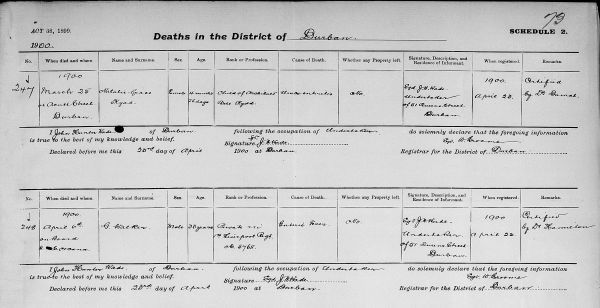 79
ACT 38, 1899.
Deaths in the District of Durban.
SCHEDULE 2.
1900.
No.
When died and where.
Name and Surname.
Sex.
Age.
Rank or Profession.
Cause of Death.
Whether any Property left.
Signature, Description, and Residence of Informant.
When registered.
Remarks.
247
1900
March 25
Street
Durban.
Grace
11 months
days
Child of
No
Undertaker
Street
Durban
1900.
April 23.
Certified
by Dr
I John Hunter Wade of Durban following the occupation of Undertaker do solemnly declare that the foregoing information
is true to the best of my knowledge and belief.
Signature J H Wade
Declared before me this day of April 1900 at Durban
Registrar for the District of Durban
No.
When died and where.
Name and Surname.
Sex.
Age.
Rank or Profession.
Cause of Death.
Whether any Property left.
Signature, Description, and Residence of Informant.
When registered.
Remarks.
248
1900.
April
on board
G. Walker
Male
years
Private
Liverpool Regt
Enteric Fever
No
J H Wade
Undertaker
Street
Durban
1900
April 23
Certified
by Dr Hamilton
I John Hunter Wade of Durban following the occupation of Undertaker do solemnly declare that the foregoing information
is true to the best of my knowledge and belief.
Signature J H Wade
Declared before me this day of April 1900 at Durban
Registrar for the District of Durban